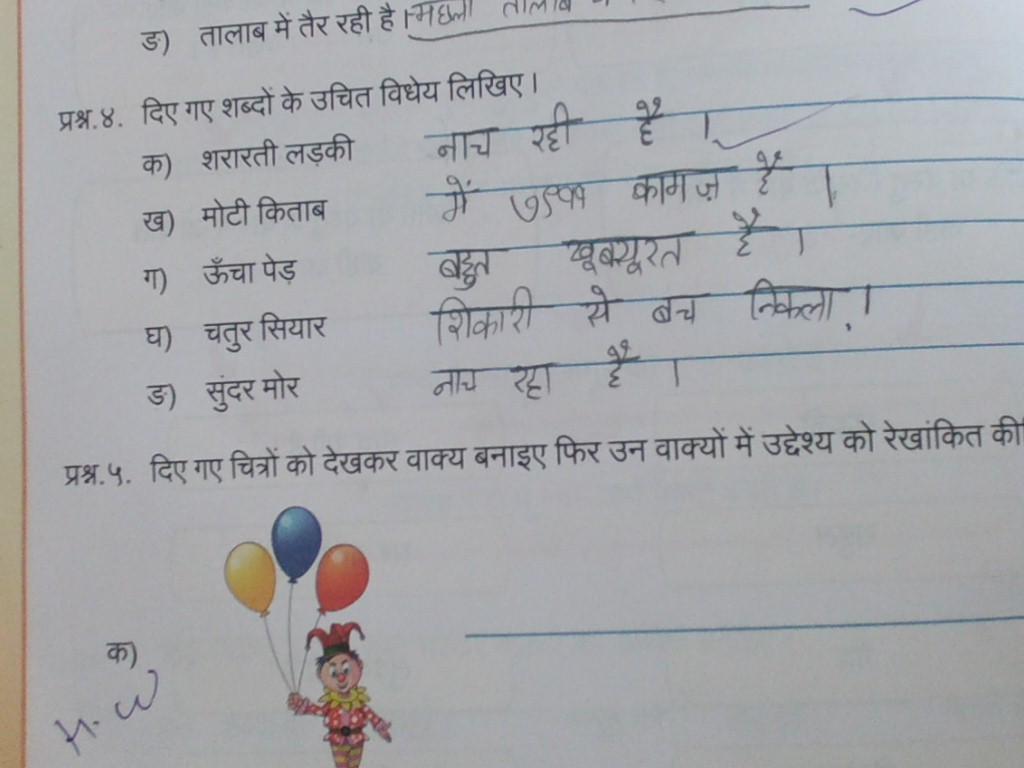 ङ) तालाब में तैर रही है। मछली तालाब
प्रश्न.४. दिए गए शब्दों के उचित विधेय लिखिए।
क) शरारती लड़की नाच रही है ।
ख) मोटी किताब में ७९११ कागज़ है ।
ग) ऊँचा पेड़ बहुत खूबसूरत है ।
घ) चतुर सियार शिकारी से बच निकला ।
ङ) सुंदर मोर नाच रहा है ।
प्रश्न.५. दिए गए चित्रों को देखकर वाक्य बनाइए फिर उन वाक्यों में उद्देश्य को रेखांकित की
क)
H.W